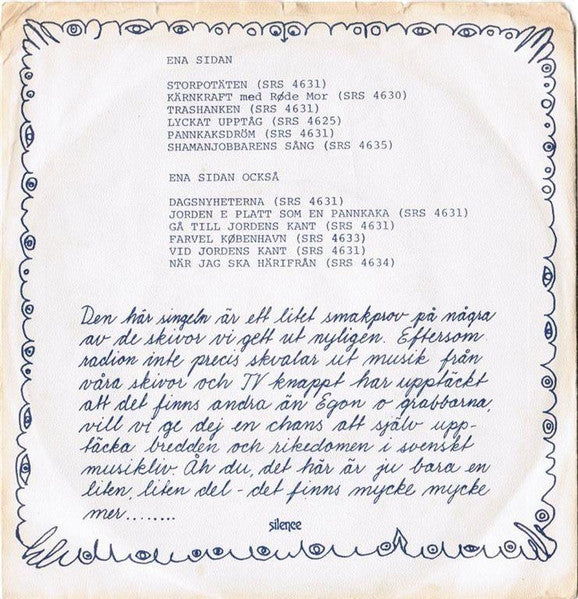 ENA SIDAN
STORPOTÄTEN (SRS 4631)
KÄRNKRAFT med Røde Mor (SRS 4630)
TRASHANKEN (SRS 4631)
LYCKAT UPPTÅG (SRS 4625)
PANNKAKSDRÖM (SRS 4631)
SHAMANJOBBARENS SÅNG (SRS 4635)
ENA SIDAN OCKSÅ
DAGSNYHETERNA (SRS 4631)
JORDEN E PLATT SOM EN PANNKAKA (SRS 4631)
GÅ TILL JORDENS KANT (SRS 4631)
FARVEL KØBENHAVN (SRS 4633)
VID JORDENS KANT (SRS 4631)
NÄR JAG SKA HÄRIFRÅN (SRS 4634)
Den här singeln är ett litet smakprov på några
av de skivor vi gett ut nyligen. Eftersom
radion inte precis skvalar ut musik från
våra skivor och TV knappt har upptäckt
att det finns andra än Egon o grabbarna,
vill vi ge dej en chans att själv upp-
täcka bredden och rikedomen i svenskt
musikliv. Åh du, det här är ju bara en
liten, liten del - det finns mycke mycke
mer........
silence